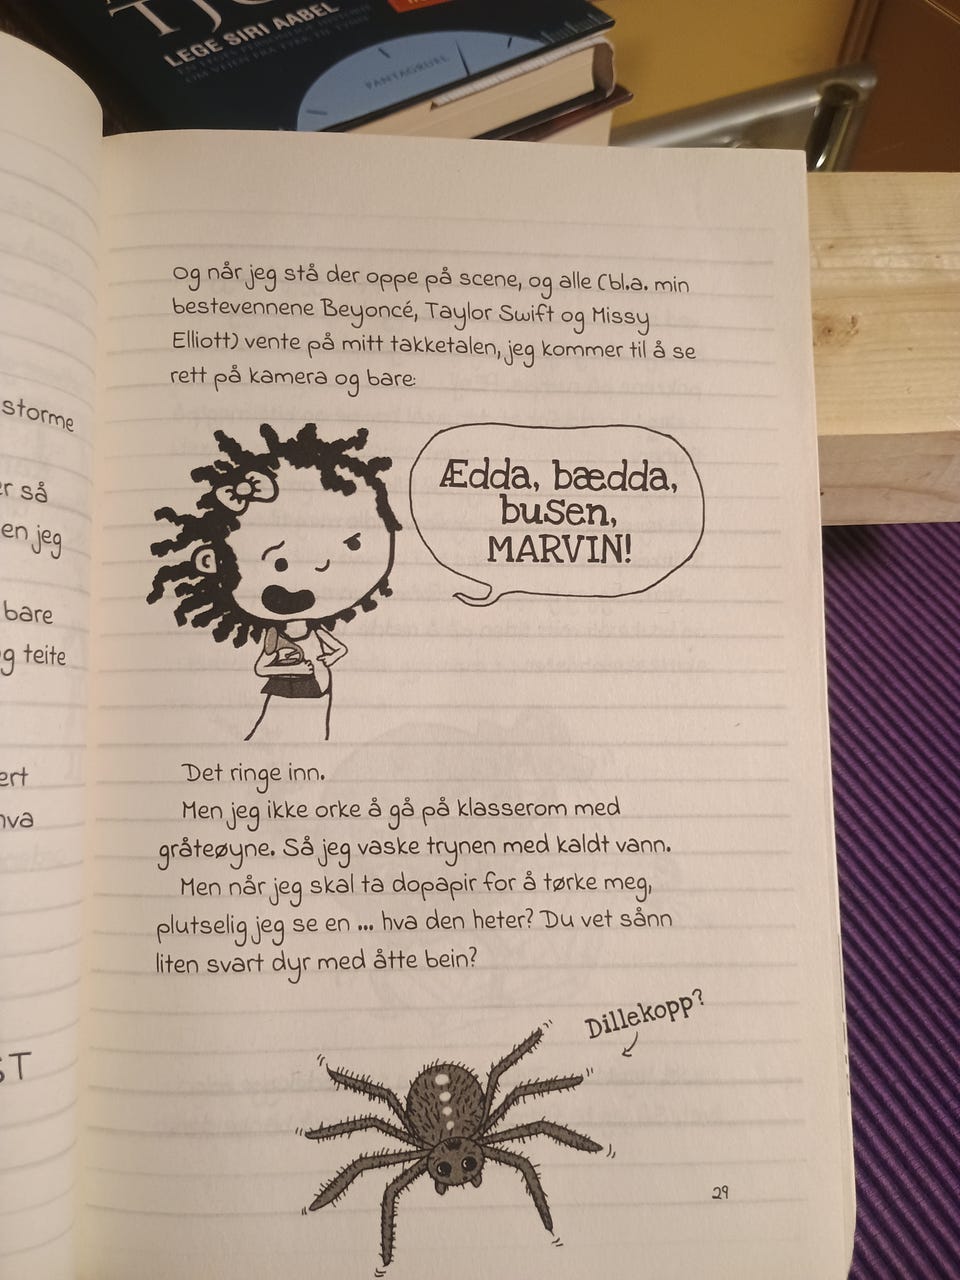 LEGE SIRI AABEL
PANTAGRUEL
storme
er så
en jeg
bare
g teite
ert
hva
ST
og når jeg stå der oppe på scene, og alle (bl.a. min
bestevennene Beyoncé, Taylor Swift og Missy
Elliott) vente på mitt takketalen, jeg kommer til å se
rett på kamera og bare:
Ædda, bædda,
busen,
MARVIN!
Det ringe inn.
Men jeg ikke orke å gå på klasserom med
gråteøyne. Så jeg vaske trynen med kaldt vann.
Men når jeg skal ta dopapir for å tørke meg,
plutselig jeg se en ... hva den heter? Du vet sånn
liten svart dyr med åtte bein?
Dillekopp?
29